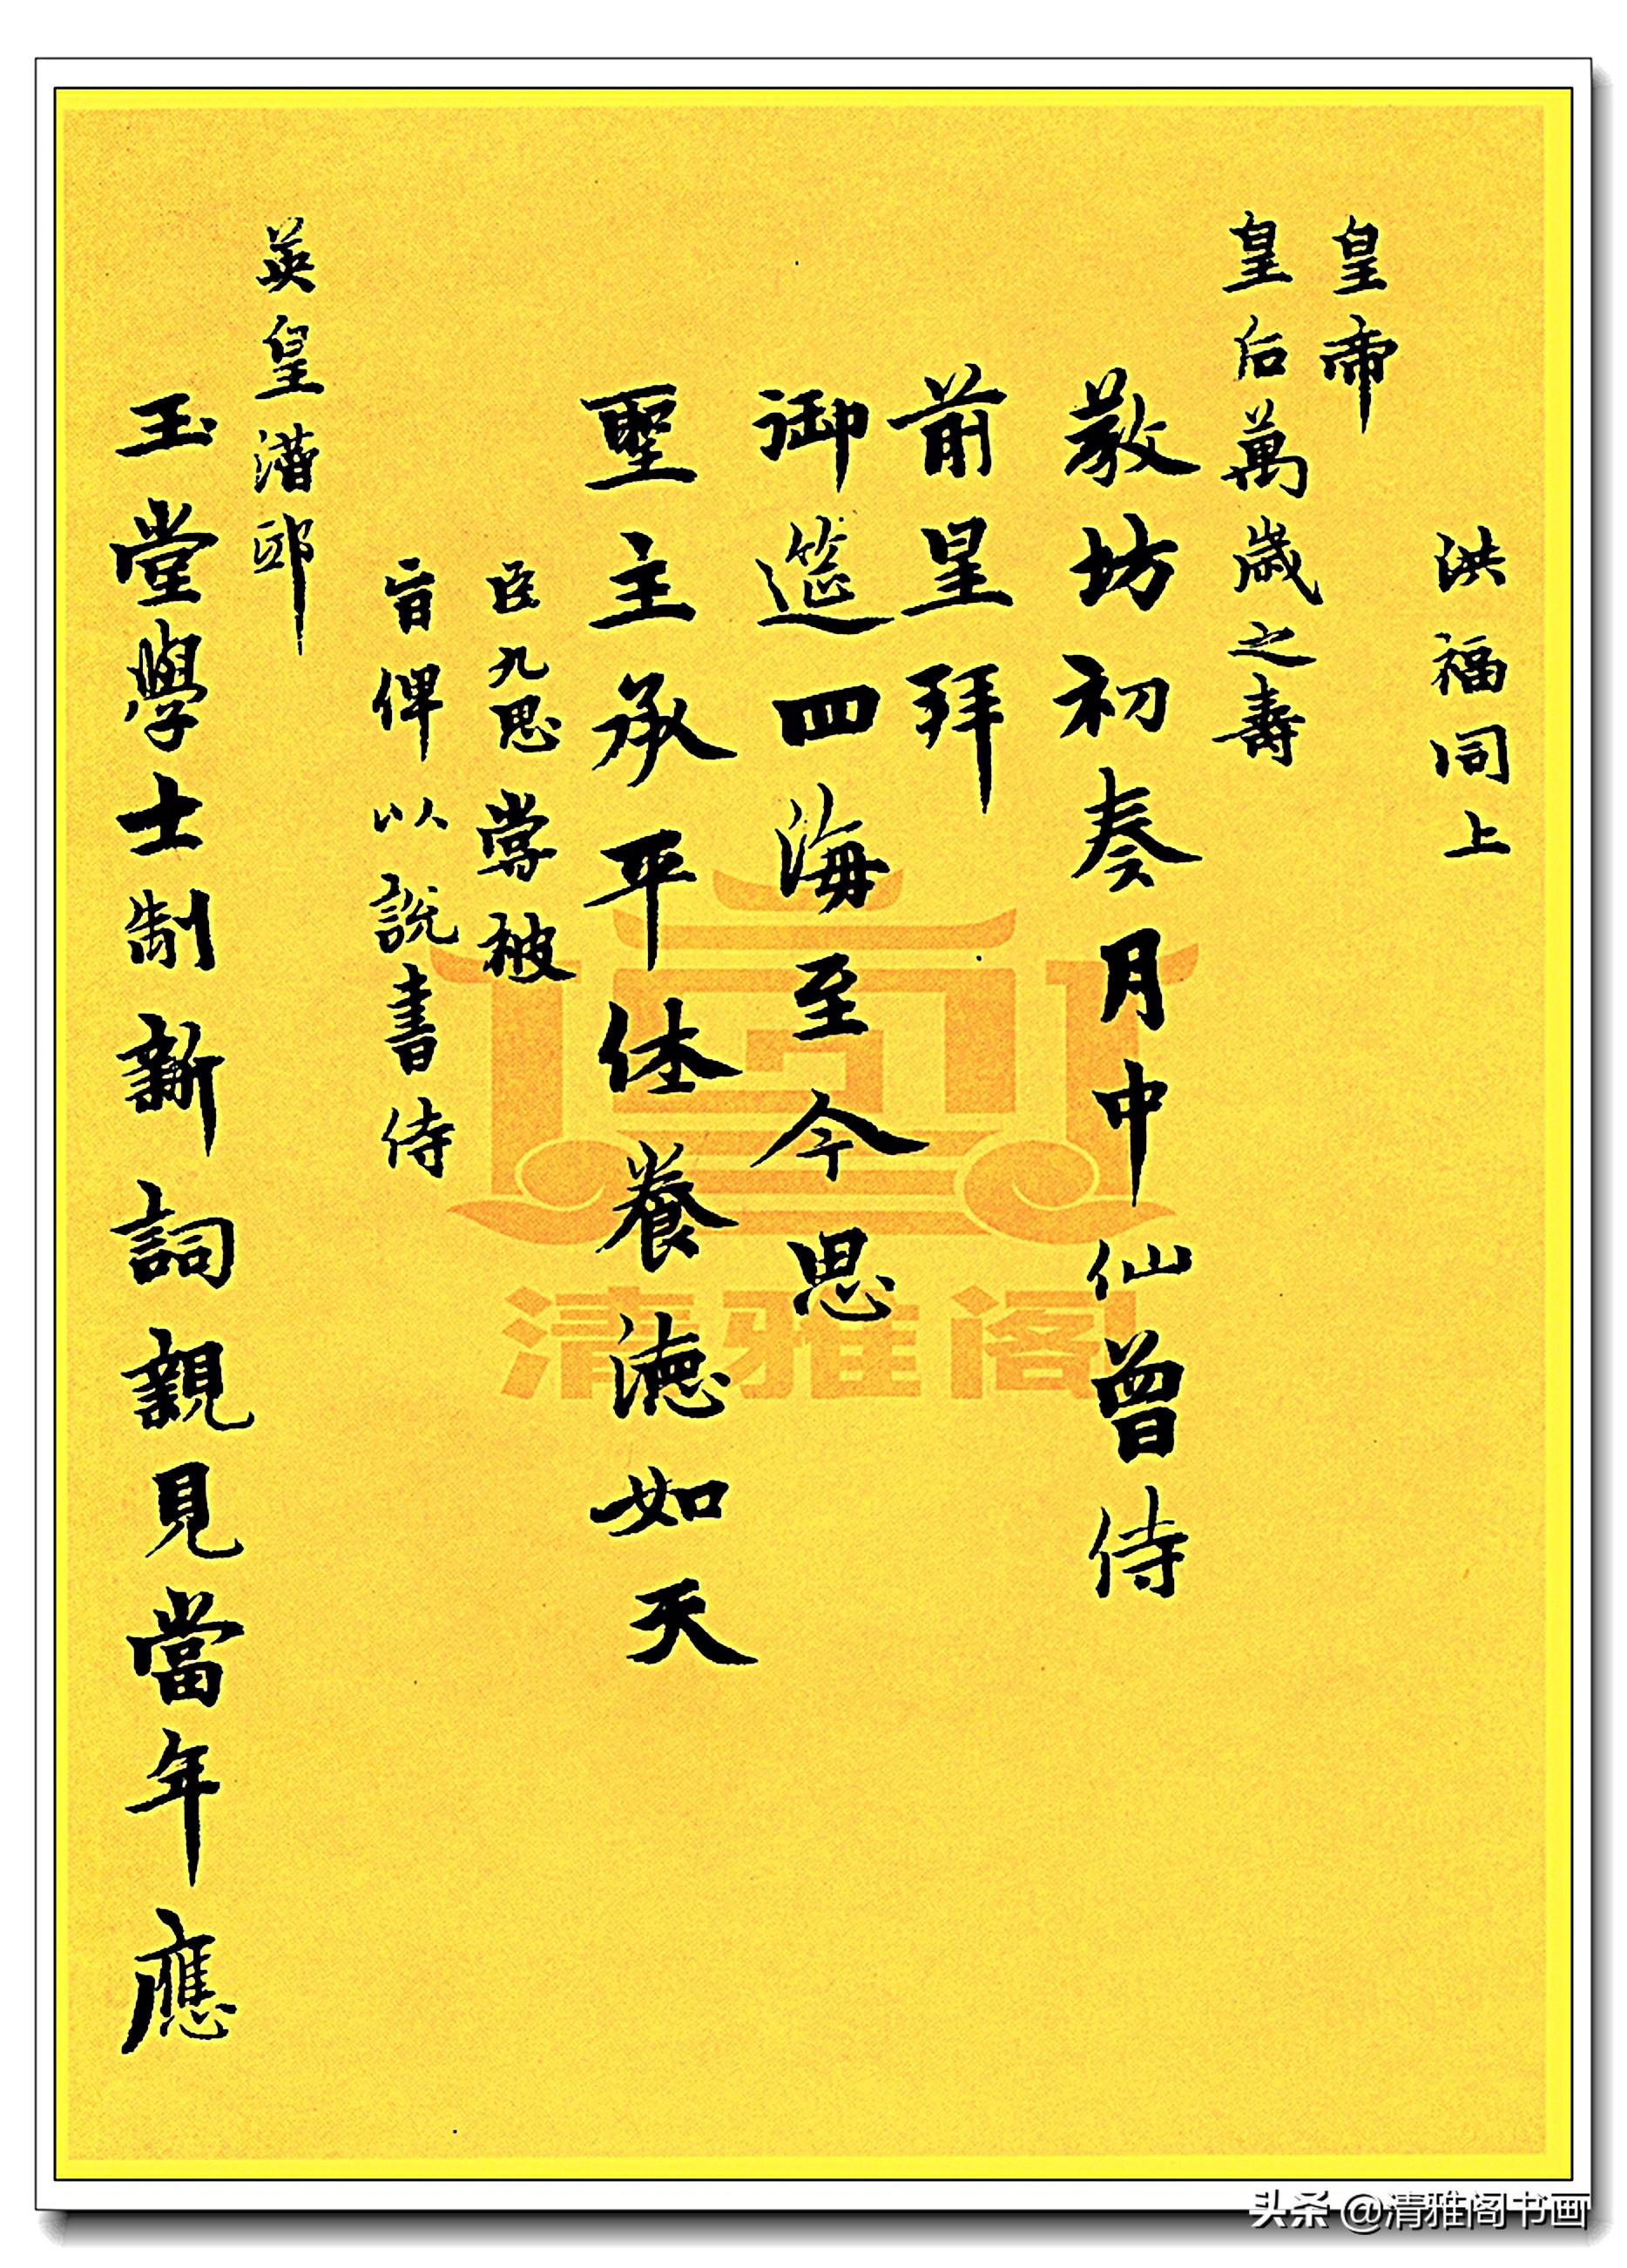 洪福同上
皇帝
皇后萬歲之壽
教坊初奏月中仙曾侍
前星拜
御筵四海至今思
聖主承平休養德如天
臣九思嘗被
旨俾以說書侍
英皇潛邸
玉堂學士制新詞親見當年應
清雅阁
头条 @清雅阁书画